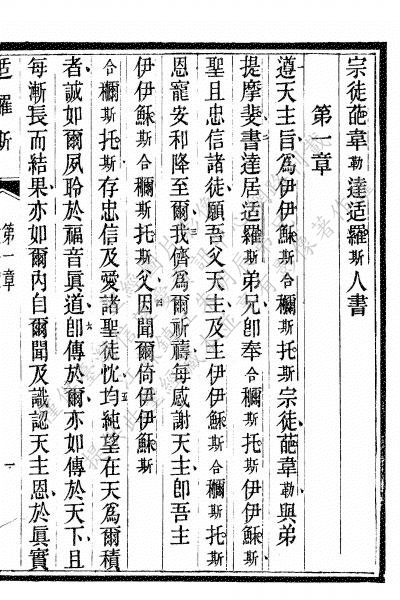 宗徒葩韋勒達适羅斯人書
第一章
遵天主旨爲伊伊穌斯合穪托斯宗徒葩韋勒與弟
提摩斐書達居适羅斯弟兄卽奉合穪托斯伊伊穌斯
聖且忠信諸徒願吾父天主及主伊伊穌斯合穪托斯
恩寵安和降至爾我儕爲爾祈禱每感謝天主卽吾主
伊伊穌斯合穪托斯父因聞爾倚伊伊穌斯
合穪托斯存忠信及愛諸聖徒忱均純望在天爲爾積
者誠如爾夙聆於福音眞道卽傳於爾亦如傳於天下且
每漸長而結果亦如爾內自爾聞及識認天主恩於眞實
适羅斯
第一章
一